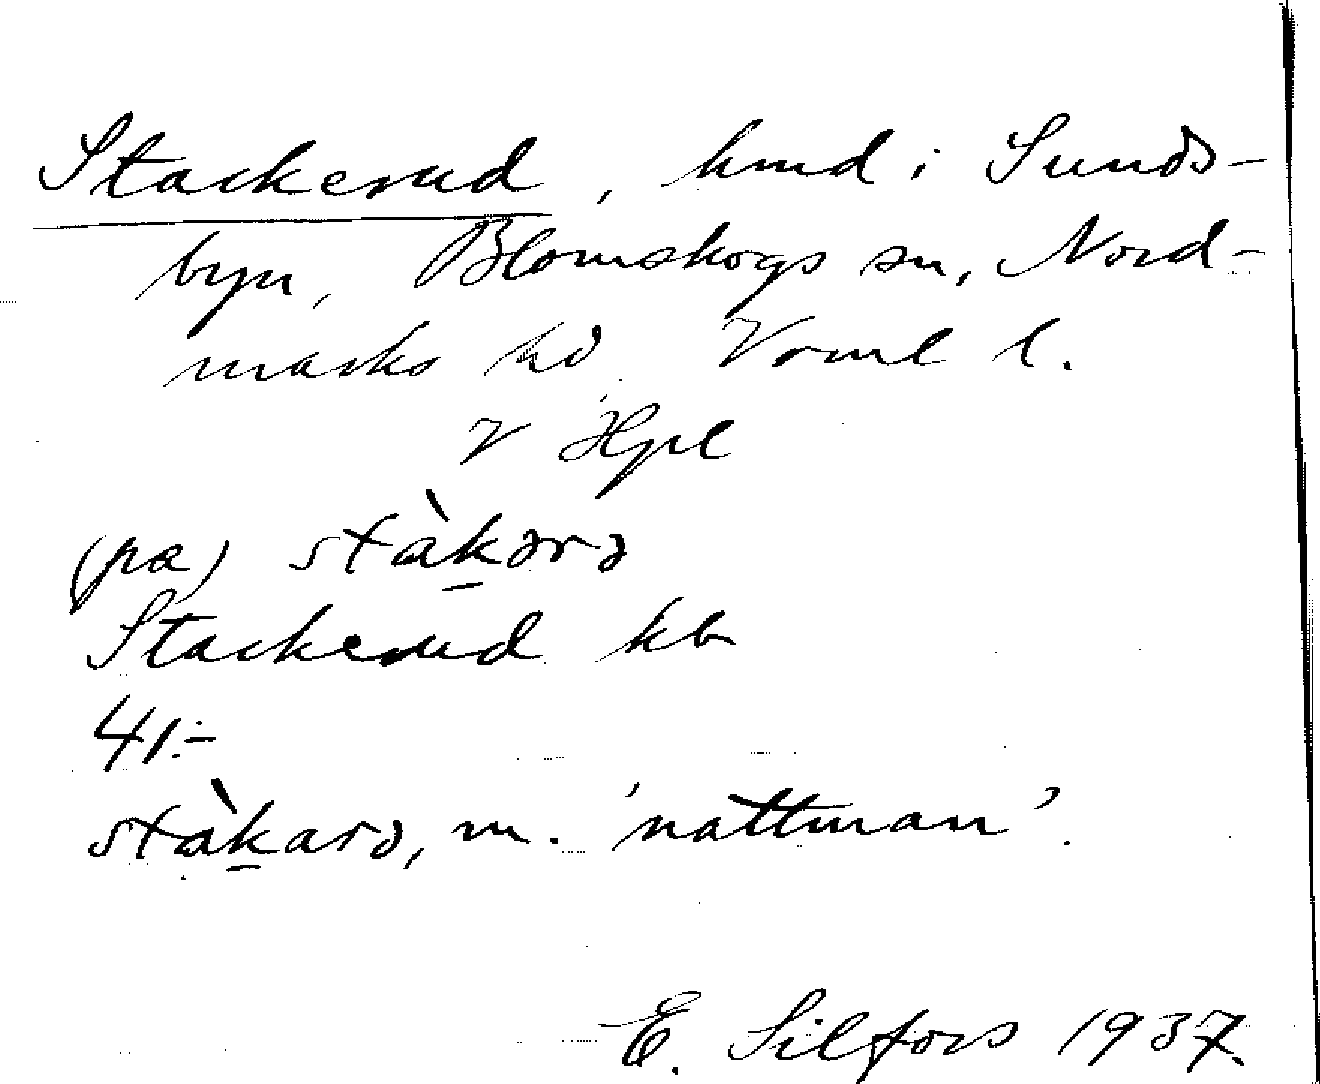 Stackerud, hmd i Sunds-
byn, Blomskogs sn, Nord-
marks hd Vrml l.
V Hpl
(pa) stàkərə
Stackerud kb
41:-
stàkarə, m. 'nattman'.
E. Silfors 1937.